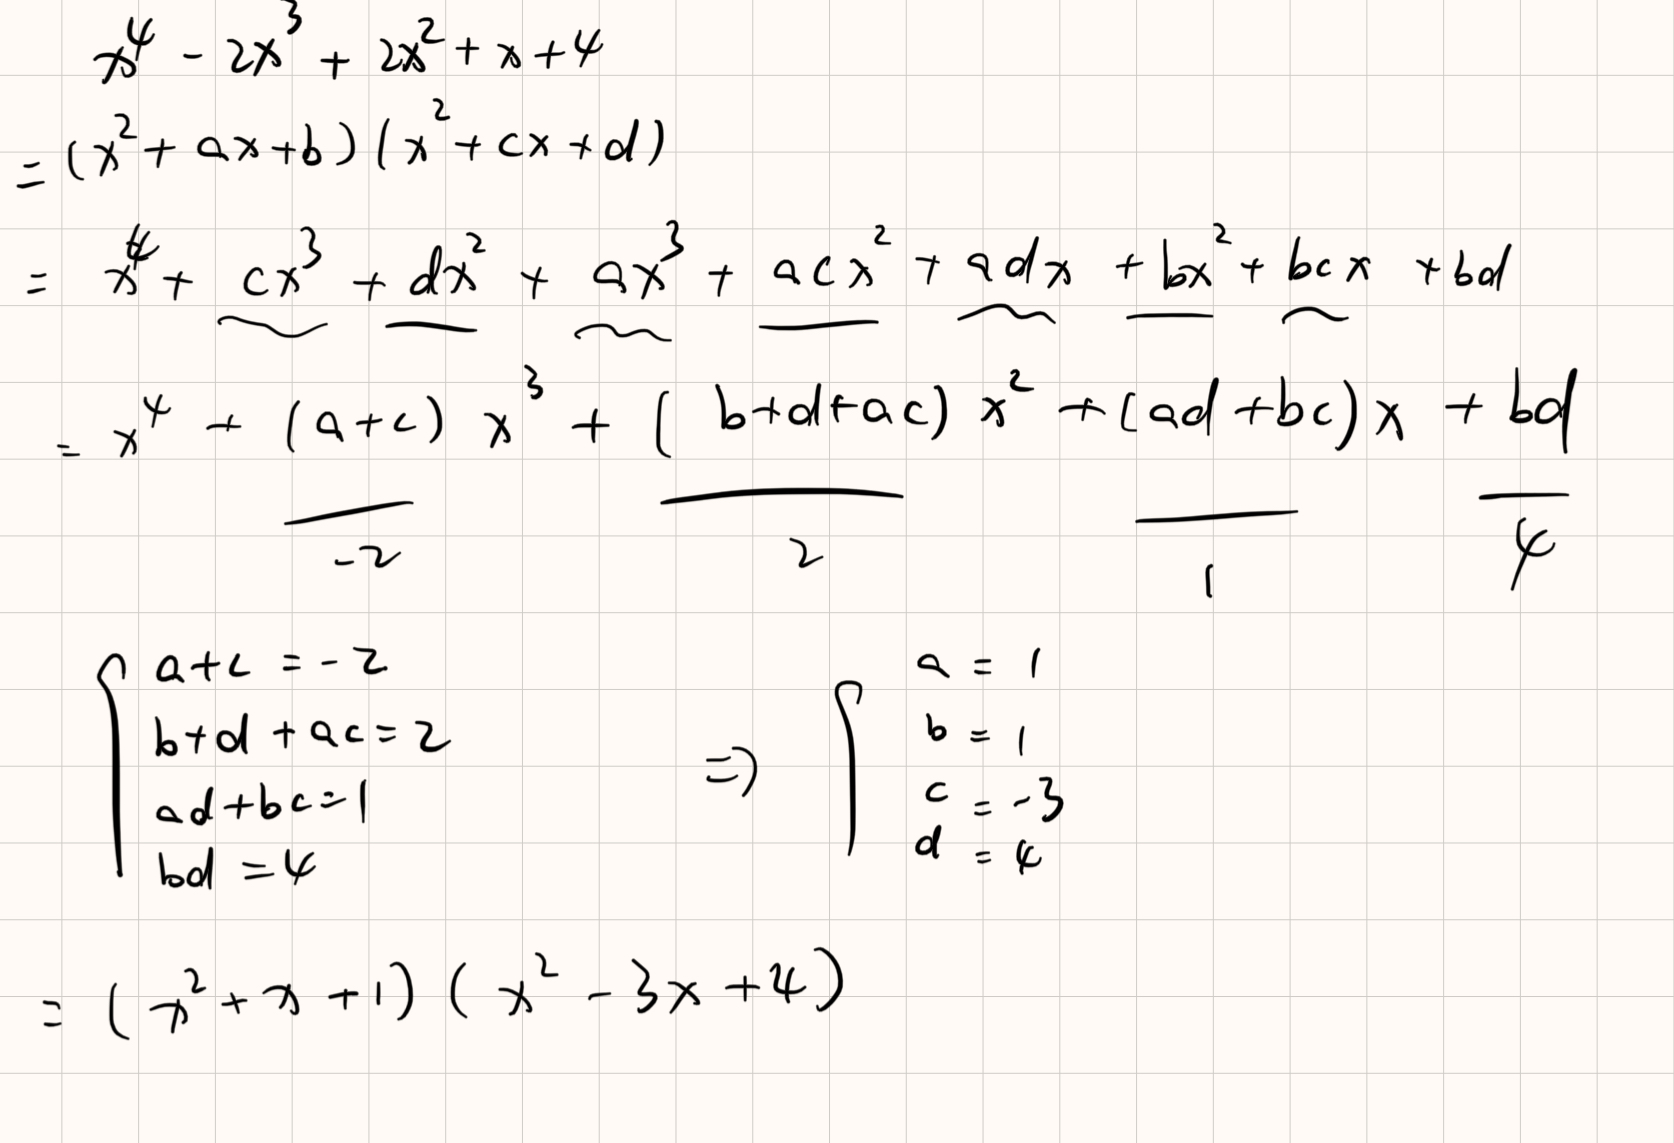 x⁴ - 2x³ + 2x² + x + 4
= (x² + ax + b)(x² + cx + d)
= x⁴ + cx³ + dx² + ax³ + acx² + adx + bx² + bcx + bd
= x⁴ + (a+c) x³ + (b+d+ac) x² + (ad+bc)x + bd
-2 2 1 4
a+c = -2
b+d+ac = 2
ad+bc = 1
bd = 4
⇒
a = 1
b = 1
c = -3
d = 4
= (x² + x + 1)(x² - 3x + 4)